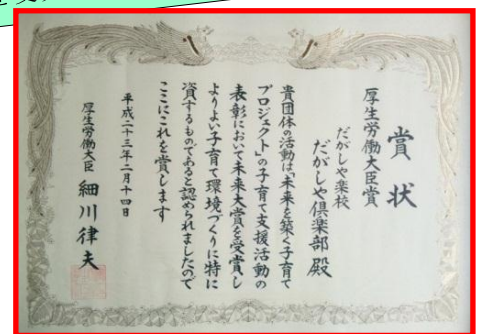 賞状
厚生労働大臣賞
だがしや楽校
だがしや倶楽部 殿
貴団体の活動は「未来を築く子育て
プロジェクト」の子育て支援活動の
表彰において未来大賞を受賞し
よりよい子育て環境づくりに特に
資するものであると認められましたので
ここにこれを賞します
平成二十三年二月十四日
厚生労働大臣 細川律夫